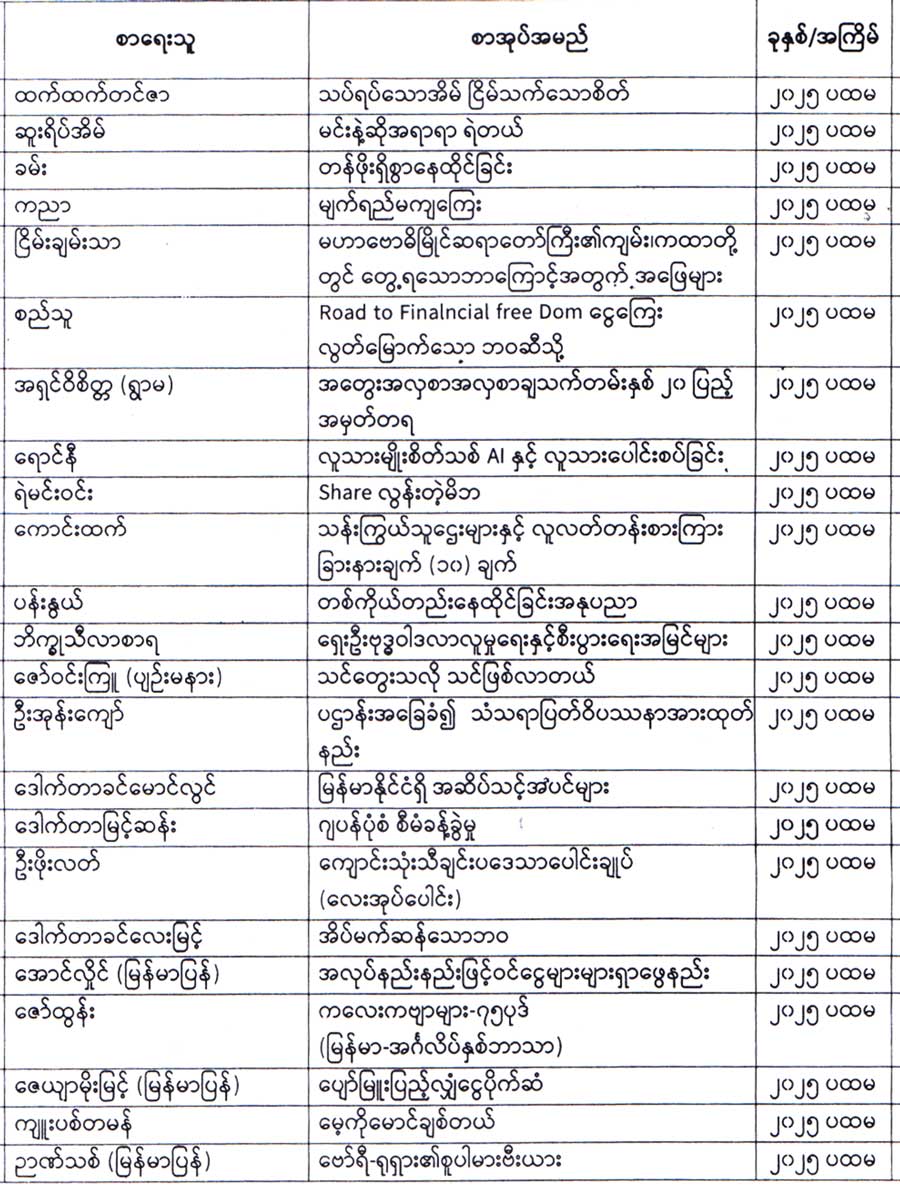 စာရေးသူ စာအုပ်အမည် ခုနှစ်/အကြိမ်
ထက်ထက်တင်ဇာ သပ်ရပ်သောအိမ် ငြိမ်သက်သောစိတ် ၂၀၂၅ ပထမ
ဆူးရိပ်အိမ် မင်းနဲ့ဆိုအရာရာ ရဲတယ် ၂၀၂၅ ပထမ
ခမ်း တန်ဖိုးရှိစွာနေထိုင်ခြင်း ၂၀၂၅ ပထမ
ကညာ မျက်ရည်မကျကြေး ၂၀၂၅ ပထမ
ငြိမ်းချမ်းသာ မဟာဗောဓိမြိုင်ဆရာတော်ကြီး၏ကျမ်း၊ကထာတို့ ၂၀၂၅ ပထမ
တွင် တွေ့ရသောဘာကြောင့်အတွက် အဖြေများ
စည်သူ Road to Finalncial free Dom ငွေကြေး ၂၀၂၅ ပထမ
လွတ်မြောက်သော ဘဝဆီသို့
အရှင်ဝိစိတ္တ (ရွာမ) အတွေးအလှစာအလှစာချသက်တမ်းနှစ် ၂၀ ပြည့် ၂၀၂၅ ပထမ
အမှတ်တရ
ရောင်နီ လူသားမျိုးစိတ်သစ် AI နှင့် လူသားပေါင်းစပ်ခြင်း ၂၀၂၅ ပထမ
ရဲမင်းဝင်း Share လွန်းတဲ့မိဘ ၂၀၂၅ ပထမ
ကောင်းထက် သန်းကြွယ်သူဌေးများနှင့် လူလတ်တန်းစားကြား ၂၀၂၅ ပထမ
ခြားနားချက် (၁၀) ချက်
ပန်းနွယ် တစ်ကိုယ်တည်းနေထိုင်ခြင်းအနုပညာ ၂၀၂၅ ပထမ
ဘိက္ခုသီလာစာရ ရှေးဦးဗုဒ္ဓဝါဒလာလူမှုရေးနှင့်စီးပွားရေးအမြင်များ ၂၀၂၅ ပထမ
ဇော်ဝင်းကြူ (ပျဉ်းမနား) သင်တွေးသလို သင်ဖြစ်လာတယ် ၂၀၂၅ ပထမ
ဦးအုန်းကျော် ပဌာန်းအခြေခံ၍ သံသရာပြတ်ဝိပဿနာအားထုတ် ၂၀၂၅ ပထမ
နည်း
ဒေါက်တာခင်မောင်လွင် မြန်မာနိုင်ငံရှိ အဆိပ်သင့်အပင်များ ၂၀၂၅ ပထမ
ဒေါက်တာမြင့်ဆန်း ဂျပန်ပုံစံ စီမံခန့်ခွဲမှု ၂၀၂၅ ပထမ
ဦးဖိုးလတ် ကျောင်းသုံးသီချင်းပဒေသာပေါင်းချုပ် ၂၀၂၅ ပထမ
(လေးအုပ်ပေါင်း)
ဒေါက်တာခင်လေးမြင့် အိပ်မက်ဆန်သောဘဝ ၂၀၂၅ ပထမ
အောင်လှိုင် (မြန်မာပြန်) အလုပ်နည်းနည်းဖြင့်ဝင်ငွေများများရှာဖွေနည်း ၂၀၂၅ ပထမ
ဇော်ထွန်း ကလေးကဗျာများ-၇၅ပုဒ် ၂၀၂၅ ပထမ
(မြန်မာ-အင်္ဂလိပ်နှစ်ဘာသာ)
ဇေယျာမိုးမြင့် (မြန်မာပြန်) ပျော်မြူးပြည့်လျှံငွေပိုက်ဆံ ၂၀၂၅ ပထမ
ကျူးပစ်တမန် မေ့ကိုမောင်ချစ်တယ် ၂၀၂၅ ပထမ
ဉာဏ်သစ် (မြန်မာပြန်) ဗော်ရီ-ရုရှား၏စူပါမားဗီးယား ၂၀၂၅ ပထမ